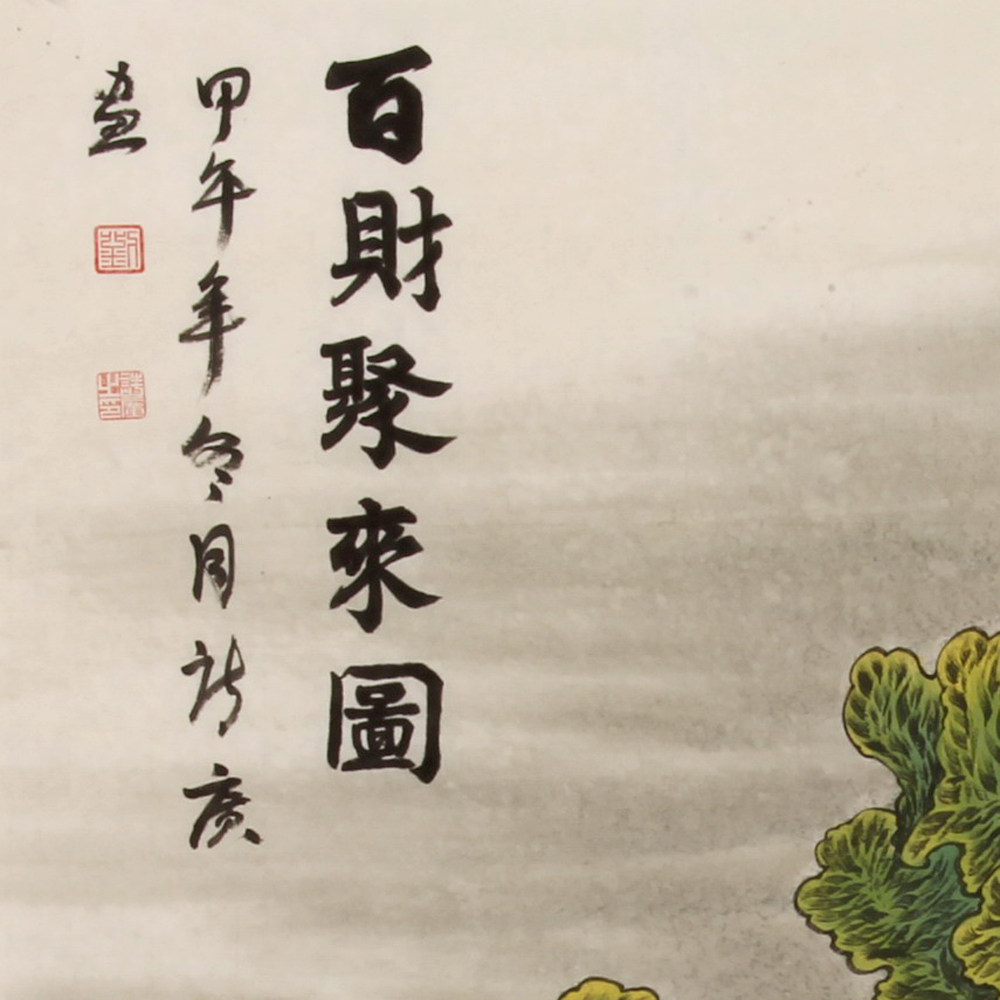 百財聚來圖
甲午年冬月詩廣
畫